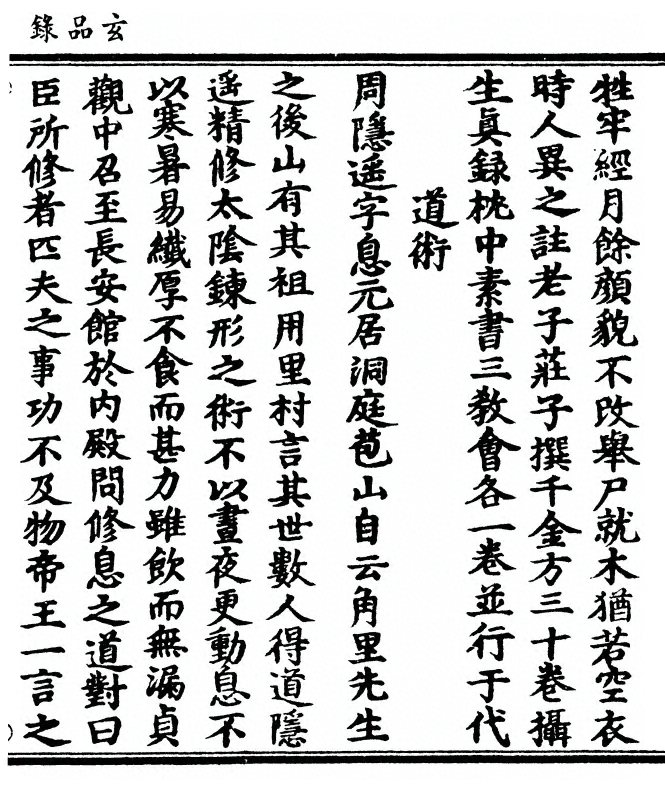 玄品錄
牲牢經月餘顏貌不改舉尸就木猶若空衣
時人異之註老子莊子撰千金方三十卷攝
生眞録枕中素書三教會各一卷並行于代
道術
周隱遥字息元居洞庭苞山自云角里先生
之後山有其祖用里村言其世數人得道隱
遥精修太陰鍊形之術不以晝夜更動息不
以寒暑易纖厚不食而甚力雖飲而無漏貞
觀中召至長安館於内殿問修息之道對曰
臣所修者匹夫之事功不及物帝王一言之